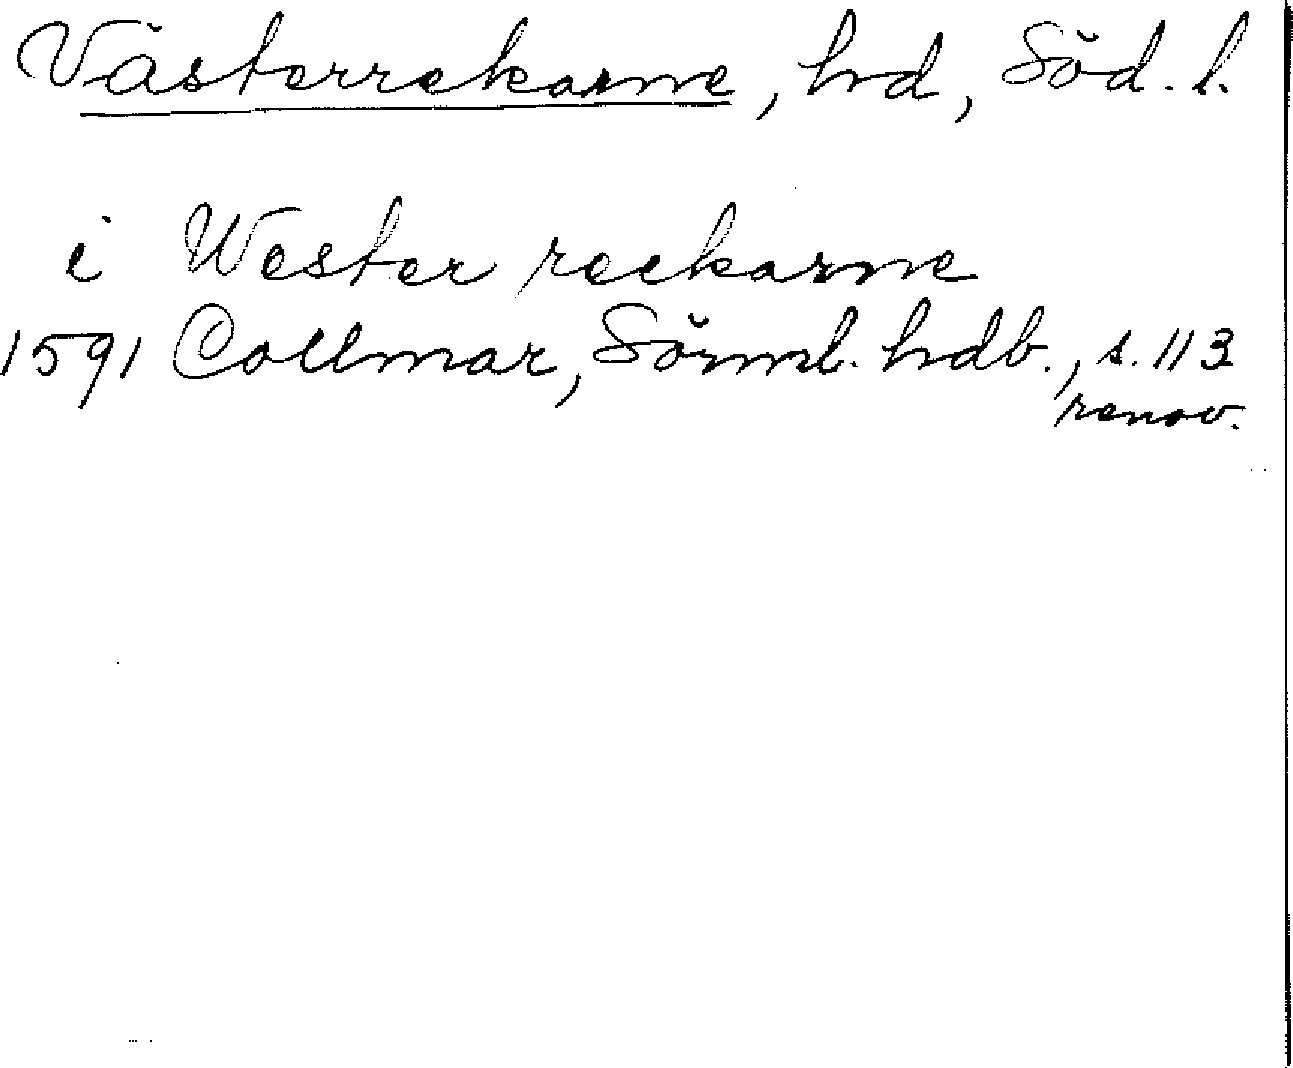 Västerrekarne, hd, Söd. l.
i Wester reekarne
1591 Collmar, Sörml. hdb., s. 113
renov.